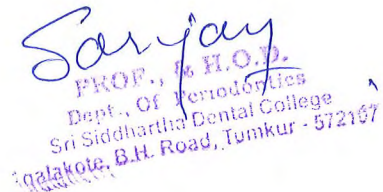 Sanjay
PROF., & H.O.D.
Dept., Of Periodontics
Sri Siddhartha Dental College
Agalakote, B.H. Road, Tumkur - 572107